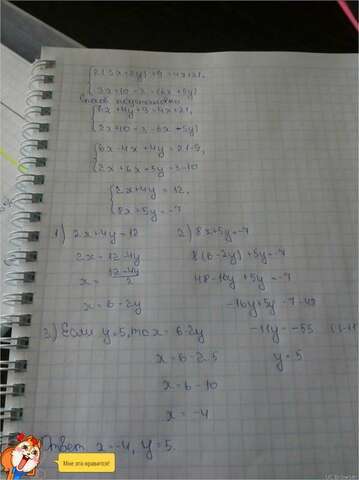 {2(3x+2y)+9=4x+21,
{2x+10=3-(6x+5y)
Способ подстановки
{6x+4y+9=4x+21,
{2x+10=3-6x-5y)
{6x-4x+4y=21-9,
{2x+6x+5y=3-10
{2x+4y=12,
{8x+5y=-7
1) 2x+4y=12 2) 8x+5y=-7
2x=12-4y 8(6-2y)+5y=-7
x=(12-4y)/2 48-16y+5y=-7
x=6-2y -16y+5y=-7-48
3) Если y=5, то x=6-2y -11y=-55
x=6-2·5 y=5
x=6-10
x=-4
Ответ x=-4, y=5.
Мне это нравится!